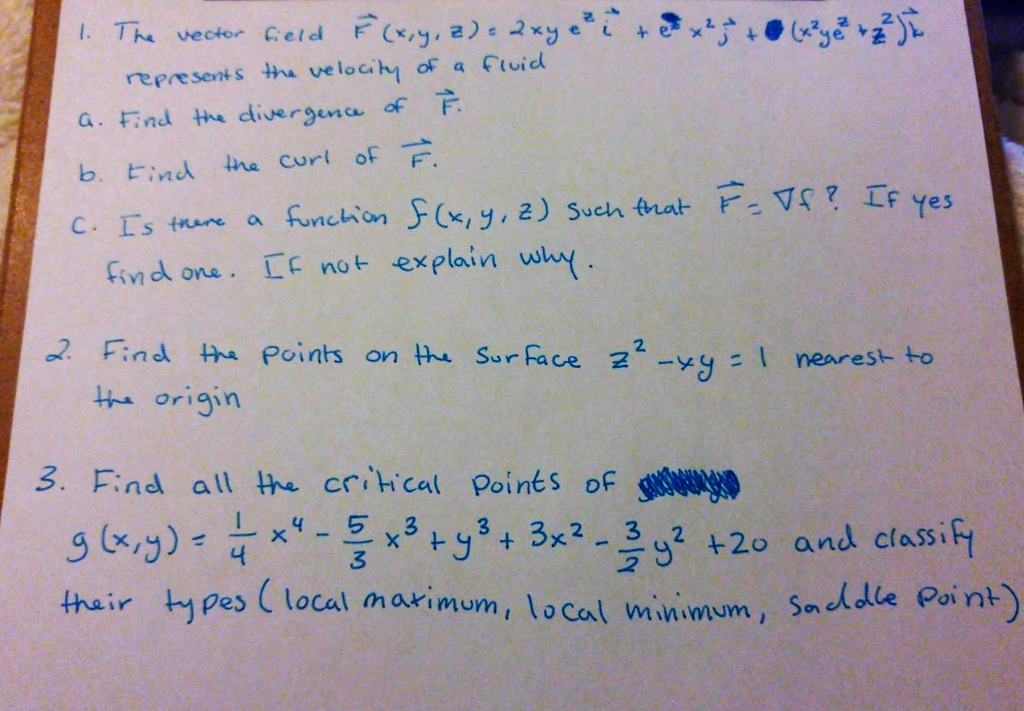 1. The vector field F⃗(x,y,z) = 2xy e^z i⃗ + e^z x² j⃗ + (x²ye^z + z²)k⃗
represents the velocity of a fluid
a. Find the divergence of F⃗.
b. Find the curl of F⃗.
C. Is there a function f(x,y,z) such that F⃗ = ∇f? If yes
find one. If not explain why.
2. Find the points on the surface z² - xy = 1 nearest to
the origin
3. Find all the critical points of
g(x,y) = 1/4 x⁴ - 5/3 x³ + y³ + 3x² - 3/2 y² + 20 and classify
their types (local maximum, local minimum, saddle point)